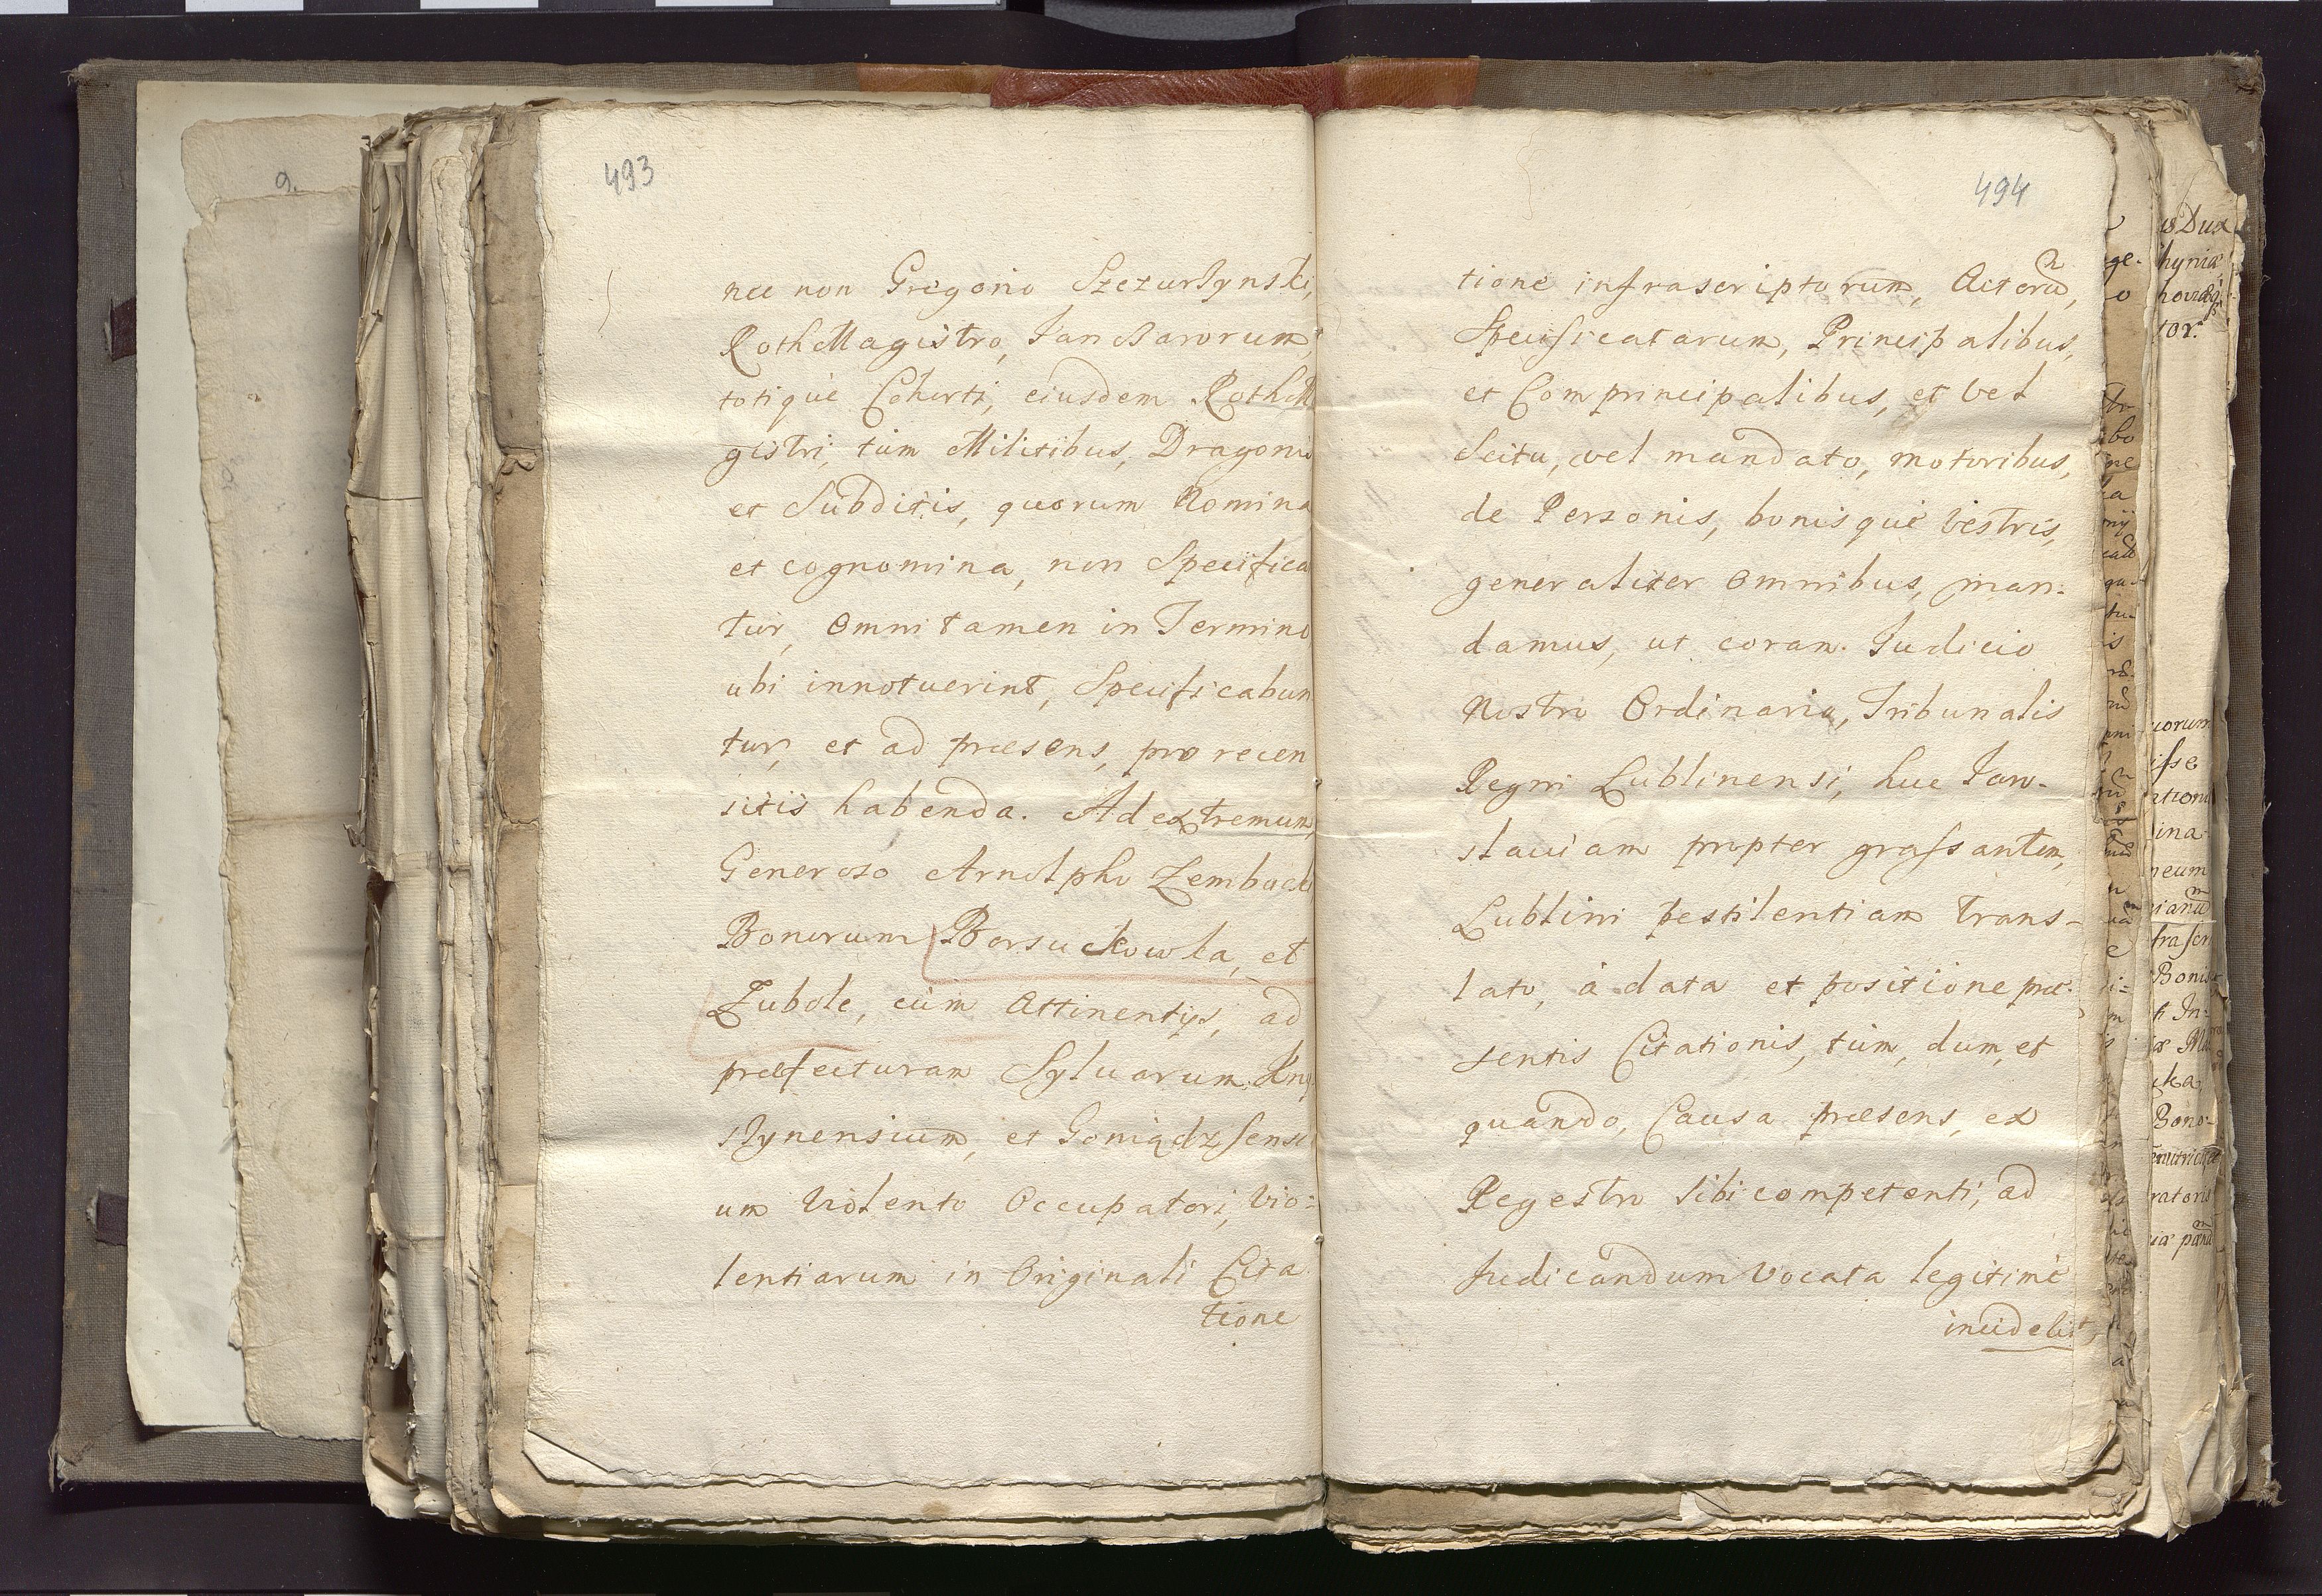 493
nec non Gregorio Szczurzynski,
RothMagistro, Janczarorum,
totique Cohorti, eiusdem RothM
gistri, tùm Militibus, Dragonis
et Subditis, quorum Nomina
et cognomina, non Specifica
tur, Omni tamen in Termino
ubi innotuerint, Specificabun
tur, et ad præsens, pro recen
sitis habenda. Ad extremum,
Generoso Arnolpho Zembock
Bonorum Borsukowka, et
Zubole, cùm Attinentijs, ad
præfecturam Syluarum Kny
szynensium, et Goniądzsensi
um Violento Occupatori, Vio:
lentiarum in Originali Cita
tione
494
tione infrascriptorum, Actorũ,
Specificatarum, Principalibus,
et Comprincipalibus, et vel
Scitu, vel mandato, motoribus,
de Personis, bonisquè vestris,
generaliter Omnibus, man.
damus, ut coram Judicio
Nostro Ordinario, Tribunalis
Regni Lublinensi, huc Jaro-
slaviam propter grassantem,
Lublini pestilentiam trans-
lato, à data et positione præ.
sentis Citationis, tùm, dum, et
quando, Causa præsens, ex
Regestro sibi competenti, ad
Judicandum Vocata legitimè
inciderit,
9.